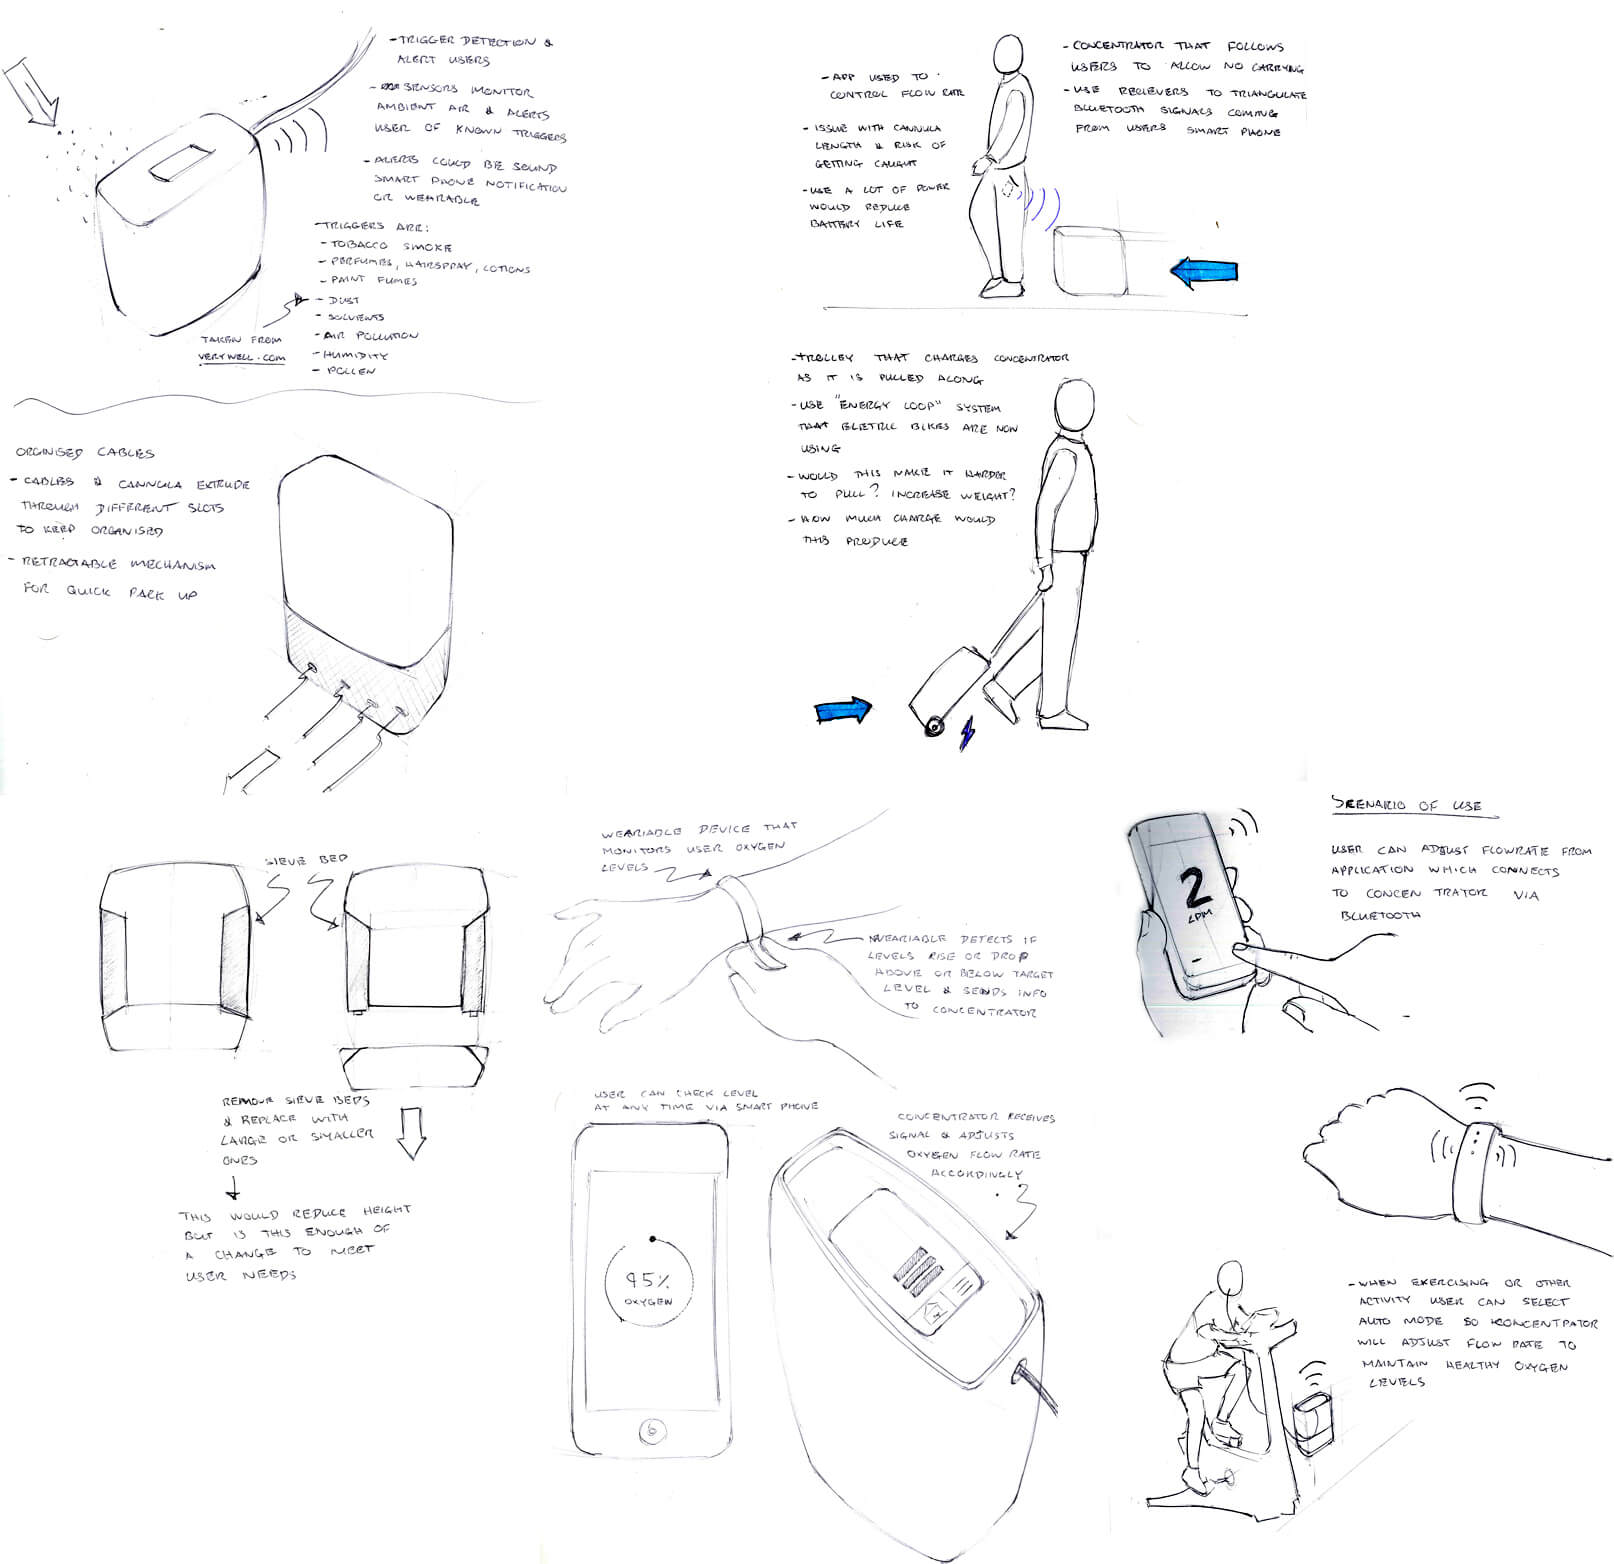 - TRIGGER DETECTION &
ALERT USERS
- SENSORS MONITOR
AMBIENT AIR & ALERTS
USER OF KNOWN TRIGGERS
- ALERTS COULD BE SOUND
SMART PHONE NOTIFICATION
OR WEARABLE
- TRIGGERS ARE:
- TOBACCO SMOKE
- PERFUMES, HAIRSPRAY, LOTIONS
- PAINT FUMES
- DUST
- SOLVENTS
- AIR POLLUTION
- HUMIDITY
- POLLEN
TAKEN FROM
VERYWELL.COM
- APP USED TO
CONTROL FLOW RATE
- ISSUE WITH CANNULA
LENGTH & RISK OF
GETTING CAUGHT
- USE A LOT OF POWER
WOULD REDUCE
BATTERY LIFE
- CONCENTRATOR THAT FOLLOWS
USERS TO ALLOW NO CARRYING
- USE RECIEVERS TO TRIANGULATE
BLUETOOTH SIGNALS COMING
FROM USERS SMART PHONE
ORGINISED CABLES
- CABLES & CANNULA EXTRUDE
THROUGH DIFFERENT SLOTS
TO KEEP ORGANISED
- RETRACTABLE MECHANISM
FOR QUICK PACK UP
- TROLLEY THAT CHARGES CONCENTRATOR
AS IT IS PULLED ALONG
- USE "ENERGY LOOP" SYSTEM
THAT ELETRIC BIKES ARE NOW
USING
- WOULD THIS MAKE IT HARDER
TO PULL? INCREASE WEIGHT?
- HOW MUCH CHARGE WOULD
THIS PRODUCE
SIEVE BED
REMOVE SIEVE BEDS
& REPLACE WITH
LARGE OR SMALLER
ONES
THIS WOULD REDUCE HEIGHT
BUT IS THIS ENOUGH OF
A CHANGE TO MEET
USER NEEDS
WEARIABLE DEVICE THAT
MONITORS USER OXYGEN
LEVELS
WEARIABLE DETECTS IF
LEVELS RISE OR DROP
ABOVE OR BELOW TARGET
LEVEL & SENDS INFO
TO CONCENTRATOR
USER CAN CHECK LEVEL
AT ANY TIME VIA SMART PHONE
95%
OXYGEN
CONCENTRATOR RECEIVES
SIGNAL & ADJUSTS
OXYGEN FLOW RATE
ACCORDINGLY
SCENARIO OF USE
USER CAN ADJUST FLOWRATE FROM
APPLICATION WHICH CONNECTS
TO CONCENTRATOR VIA
BLUETOOTH
2
LPM
- WHEN EXERCISING OR OTHER
ACTIVITY USER CAN SELECT
AUTO MODE SO CONCENTRATOR
WILL ADJUST FLOW RATE TO
MAINTAIN HEALTHY OXYGEN
LEVELS